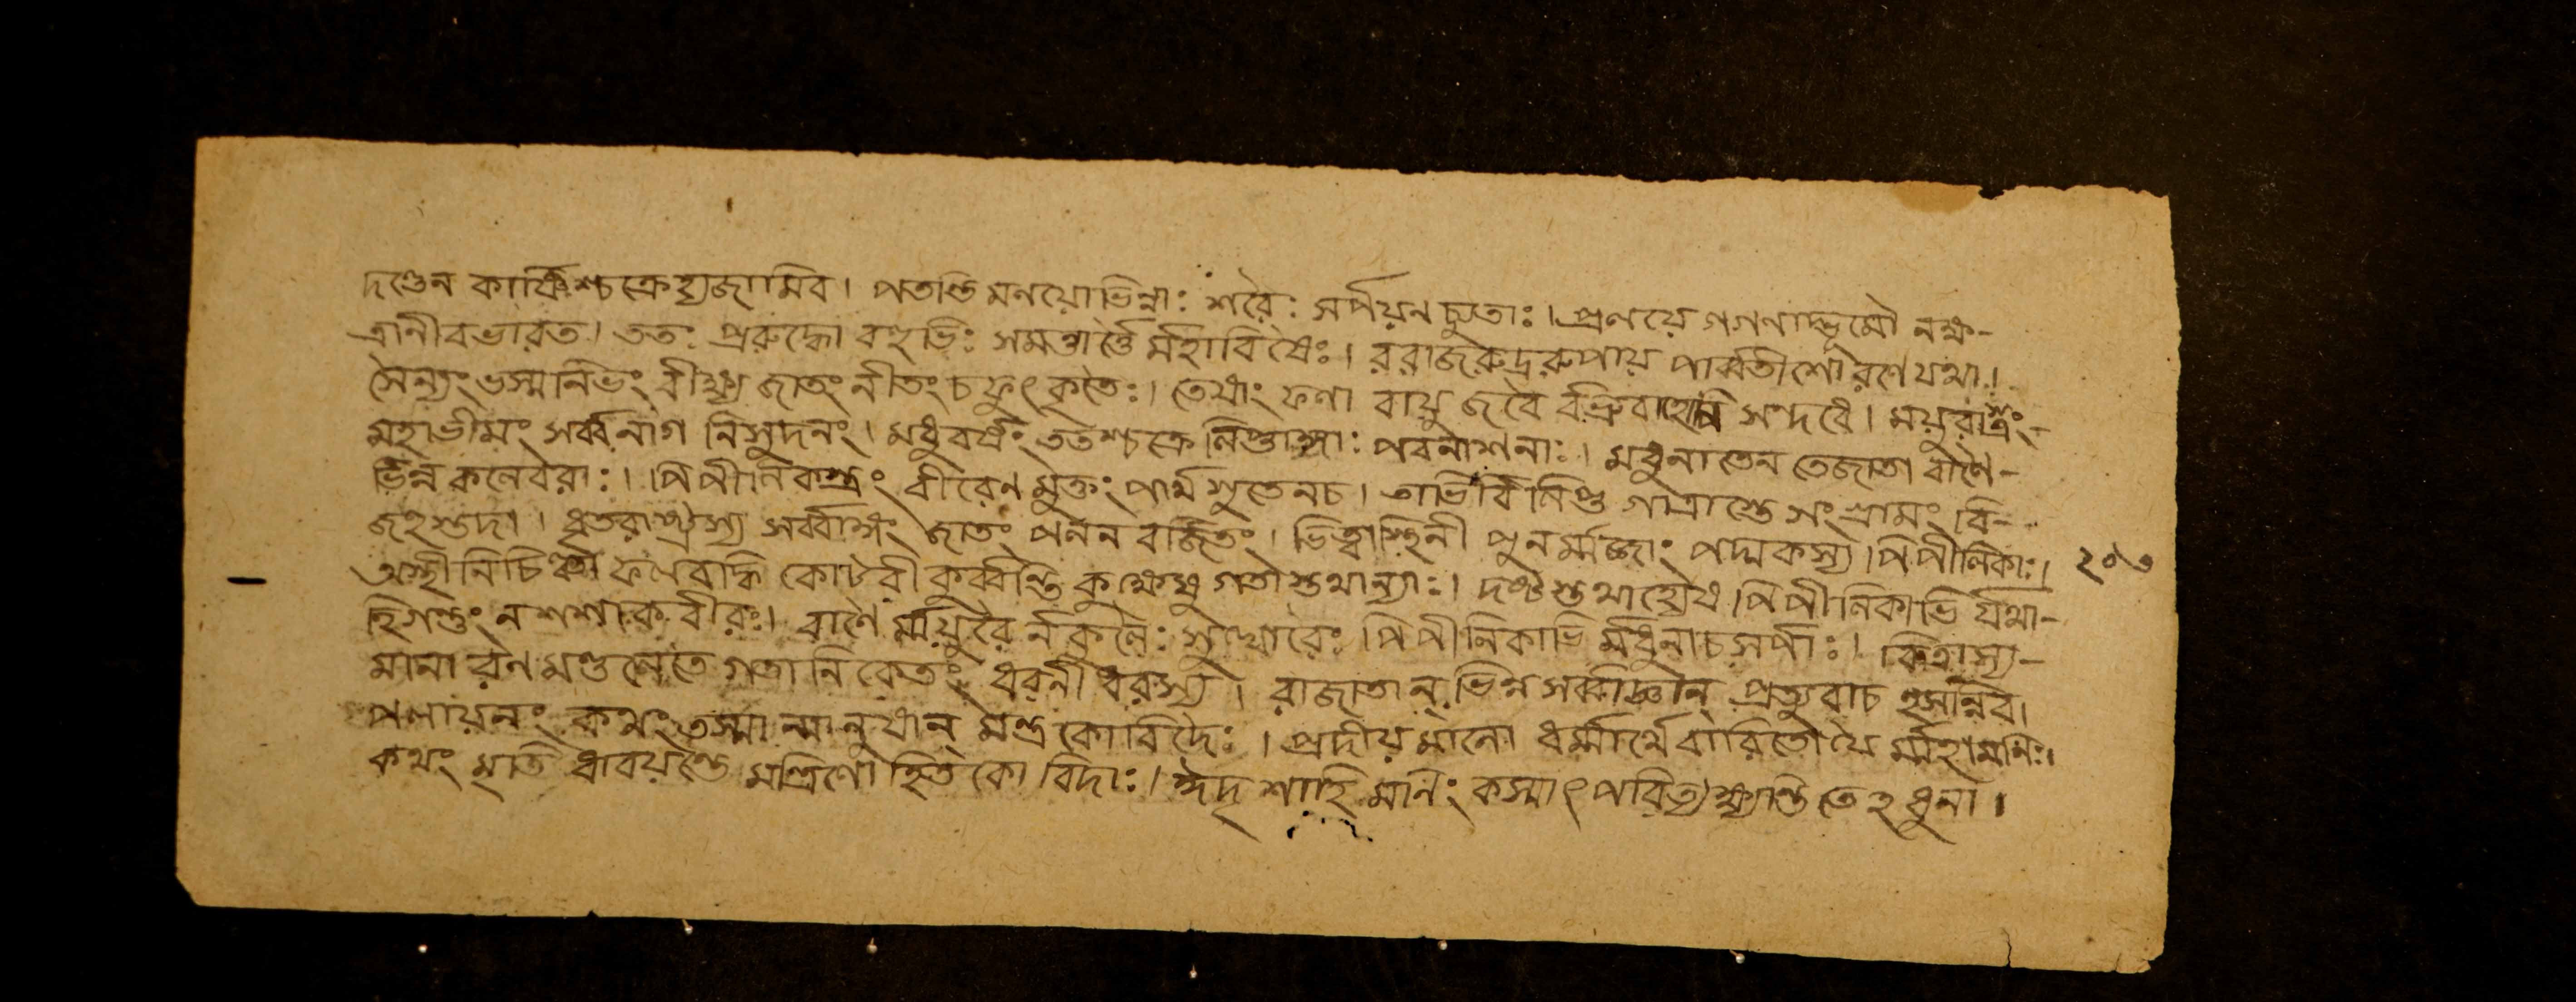 দণ্ডেন কার্ষ্ণিশ্চক্রেহ্যজামিব। পতন্তি মনয়োভিন্নাঃ শরৈঃ সর্পয়ন চ্যুতাঃ। প্রলয়ে গগণাদ্ভূমৌ নক্ষ-
ত্রানীবভারত। ততঃ প্ররুদ্ধো বহুভিঃ সমন্তার্ত্তৈ র্মহাবিষৈঃ। ররাজরুদ্ররূপায় পার্ব্বতীশো রণে যথা।
সৈন্যং ভস্মনিভং বীক্ষ্য জাতং নীতং চ ফুৎকৃতৈঃ। তেষাং ফণা বায়ু জবৈ র্বভ্রুবাহোপি সন্দধে। ময়ুরাস্ত্রং-
মহাভীমং সর্ব্বনাগ নিসুদনং। মধুবর্ষং ততশ্চক্রে লিপ্তাঙ্গাঃ পবনাশনাঃ। মধুনাতেন তেজাতা বাণৈ-
র্ভিন্ন কলেবরাঃ। পিপীলিকাস্ত্রং বীরেণ মুক্তং পার্থ সুতেনচ। তাভির্বিলিপ্ত গাত্রাস্তে সংগ্রামং বি-
জহুস্তদা। ধৃতরাষ্ট্রস্য সর্ব্বাঙ্গং জাতং পললবর্জিতং। ভিত্বাস্থিনী পুনর্মজ্জাং পদ্মকস্য পিপীলিকাঃ।
অস্থীনি চিত্বা ফণিবাদ্ধি কোটরী কুর্ব্বন্তি কুক্ষেষু গতাস্তথান্যাঃ। দষ্টস্তথাহ্যেষ পিপীলিকাভি র্যথা-
হিগন্তুং ন শশাক বীরঃ। বাণৈ র্ম্ময়ুরৈ র্নকুলৈঃ সুঘোরৈঃ পিপীলিকাভি র্মধুনাচ সর্পাঃ। বিত্রাস্য-
মানা রণ মণ্ডলেতে গতা নিকেতং ধরনী ধরস্য। রাজাতান্ ভিন্ন সর্ব্বাঙ্গান্ প্রত্যুবাচ হসন্নিব।
পলায়নং কথং তস্মা ন্মানুষান্ মন্ত্রকোবিদৈঃ। প্রদীয়মানো ধর্ম্মার্থে বারিতো যৈ র্ম্মহামনিঃ।
কথং মৃতি ধ্রাবয়ন্তে মন্ত্রিণো হিত কোবিদাঃ। ঈদৃশাহি মানং কস্মাৎ পরিত্যক্ষ্যন্তি তেহধুনা।
২০৩